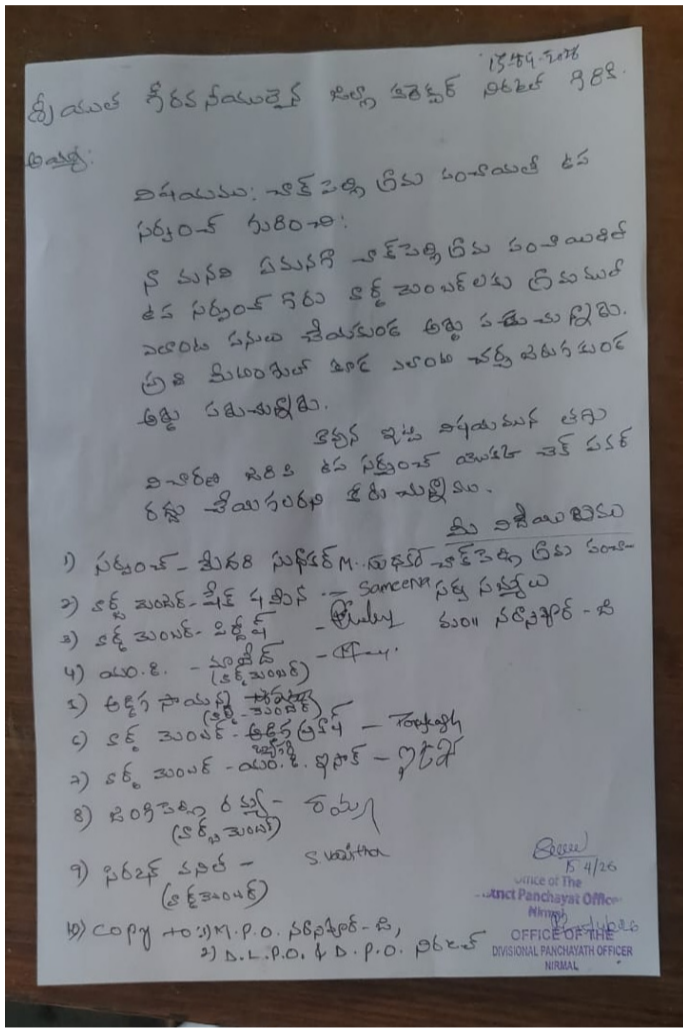 15-04-2026
శ్రీయుత గౌరవనీయులైన జిల్లా కలెక్టర్ నిర్మల్ గారికి.
అయ్యా:
విషయము: చాక్ పెల్లి గ్రామ పంచాయితీ ఉప
సర్పంచ్ గురించి:
నా మనవి ఏమనగా చాక్ పెల్లి గ్రామ పంచాయితీలో
ఉప సర్పంచ్ గారు వార్డ్ మెంబర్ లకు గ్రామములో
ఎలాంటి పనులు చేయకుండ అడ్డు పడుచున్నారు.
ప్రతి మీటింగులో కూడ ఎలాంటి చర్చ జరుగకుండ
అడ్డు పడుచున్నారు.
కావున ఇట్టి విషయమున తగు
విచారణ జరిపి ఉప సర్పంచ్ యొక్క చెక్ పవర్
రద్దు చేయగలరని కోరుచున్నాము.
మీ విధేయులము
1) సర్పంచ్ - మేదరి సుధాకర్ M. సుధాకర్ చాక్ పెల్లి గ్రామ పంచా-
2) వార్డ్ మెంబర్ - షేక్ షమీన - Sameena సర్వ సభ్యులు
3) వార్డ్ మెంబర్ - - మం॥ నర్సాపూర్ - జి
4) యం.డి. - మాజీద్ -
(వార్డ్ మెంబర్)
5) అడిగ సాయన్న
(వార్డ్ మెంబర్)
6) వార్డ్ మెంబర్ - ప్రకాష్ - Prakash
7) వార్డ్ మెంబర్ - యం.డి. ఇసాక్ -
8) జంగిపెల్లి రమ్య - రమ్య
(వార్డ్ మెంబర్)
9) వనిత - Vanitha
(వార్డ్ మెంబర్)
10) Copy to :1) M.P.O. నర్సాపూర్ - జి,
2) D.L.P.O. & D.P.O. నిర్మల్
15/4/26
Office of The
District Panchayat Officer
Nirmal
OFFICE OF THE
DIVISIONAL PANCHAYATH OFFICER
NIRMAL